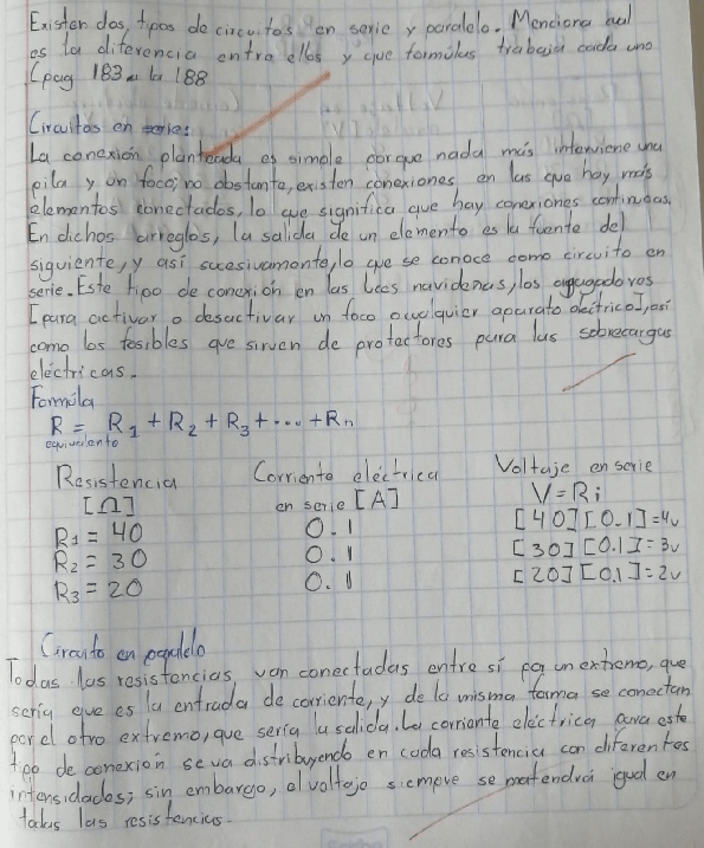 Existen dos, tipos de circuitos en serie y paralelo. Menciona cual
es la diferencia entre ellos y que formulas trabaja cada uno
(pag 183 a la 188
Circuitos en serie:
La conexión planteada es simple porque nada más interviene una
pila y un foco; no obstante, existen conexiones en las que hay más
elementos conectados, lo que significa que hay conexiones continuas.
En dichos arreglos, la salida de un elemento es la fuente del
siguiente, y así sucesivamente, lo que se conoce como circuito en
serie. Este tipo de conexión en las luces navideñas, los apagadores
[para activar o desactivar un foco o cualquier aparato eléctrico], así
como los fusibles que sirven de protectores para las sobrecargas
eléctricas.
Formula
R = R1 + R2 + R3 + ... + Rn
equivalente
Resistencia Corriente eléctrica Voltaje en serie
[Ω] en serie [A] V = Ri
R1 = 40 0.1 [40][0.1]=4v
R2 = 30 0.1 [30][0.1]=3v
R3 = 20 0.1 [20][0.1]=2v
Circuito en paralelo
Todas las resistencias van conectadas entre sí por un extremo, que
sería que es la entrada de corriente, y de la misma forma se conectan
por el otro extremo, que sería la salida. La corriente eléctrica para este
tipo de conexion se va distribuyendo en cada resistencia con diferentes
intensidades; sin embargo, el voltaje siempre se matendrá igual en
todas las resistencias.